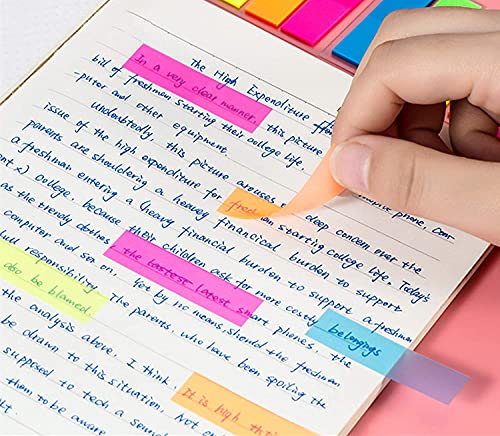 The High Expenditure
In a very clear manner, this picture
bill of freshman starting their college life.
-puter and other equipment.
Undoubtedly, this picture arouses deep concern over the
issue of the high expenditure for freshman starting college life. Today's
parents are shouldering a heavy financial burden to support
a freshman entering a (heavy financial burden to support
) college, because their children ask for more costly
as the trendy clothes the lastest latest smart phones, the
computer and so on. Yet by no means should the freshman
responsibility. The parents, who have been spoiling the
also be blamed.
the analysis above, I think
be drawn to this situation. Not
supposed to teach a
them to be aware
belongings
It is high
phone, com